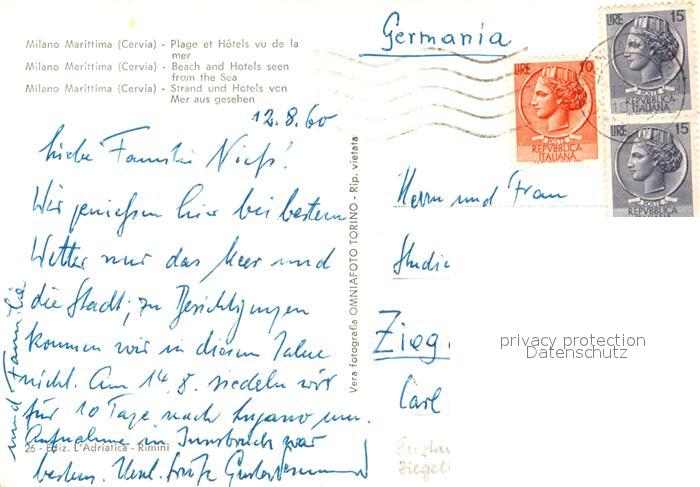 Milano Marittima (Cervia) - Plage et Hôtels vu de la
mer
Milano Marittima (Cervia) - Beach and Hotels seen
from the Sea
Milano Marittima (Cervia) - Strand und Hotels von
Mer aus gesehen
12.8.60
Liebe Familie
Wir genießen hier bei bestem
Wetter nur das Meer und
die Stadt; zu Besichtigungen
kommen wir in diesem Jahre
nicht. Am 14.8. siedeln wir
für 10 Tage nach Lugano um.
Aufnahme in Innsbruck war
bestens. Herzl. Grüße
und Familie
26 - Ediz. L'Adriatica - Rimini
Vera fotografia OMNIAFOTO TORINO - Rip. vietata
Germania
LIRE 10
POSTE
REPVBBLICA
ITALIANA
LIRE 15
POSTE
REPVBBLICA
ITALIANA
LIRE 15
POSTE
REPVBBLICA
Herrn und Frau
Studie
Zieg
Carl
Gustav
Ziegel
privacy protection
Datenschutz